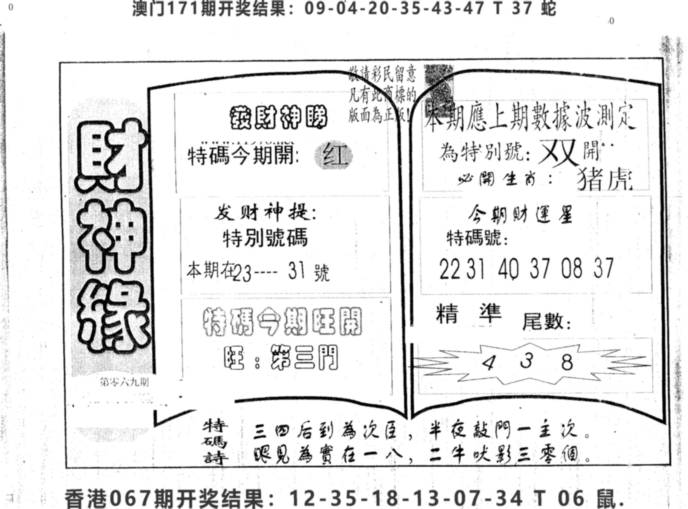 澳门171期开奖结果：09-04-20-35-43-47 T 37 蛇
敬請彩民留意
凡有此商標的
版面為正版!
財神緣
第零六九期
發財神睇
特碼今期開: 红
发财神提:
特別號碼
本期在23---- 31號
特碼今期旺開
旺:第三門
本期應上期數據波測定
為特別號: 双 開
必開生肖: 猪虎
今期财運星
特碼號:
22 31 40 37 08 37
精準 尾數:
4 3 8
特碼詩
三四后到為次臣，半夜敲門一主次。
眼見為實在一八，二牛吠影三零個。
香港067期开奖结果：12-35-18-13-07-34 T 06 鼠.